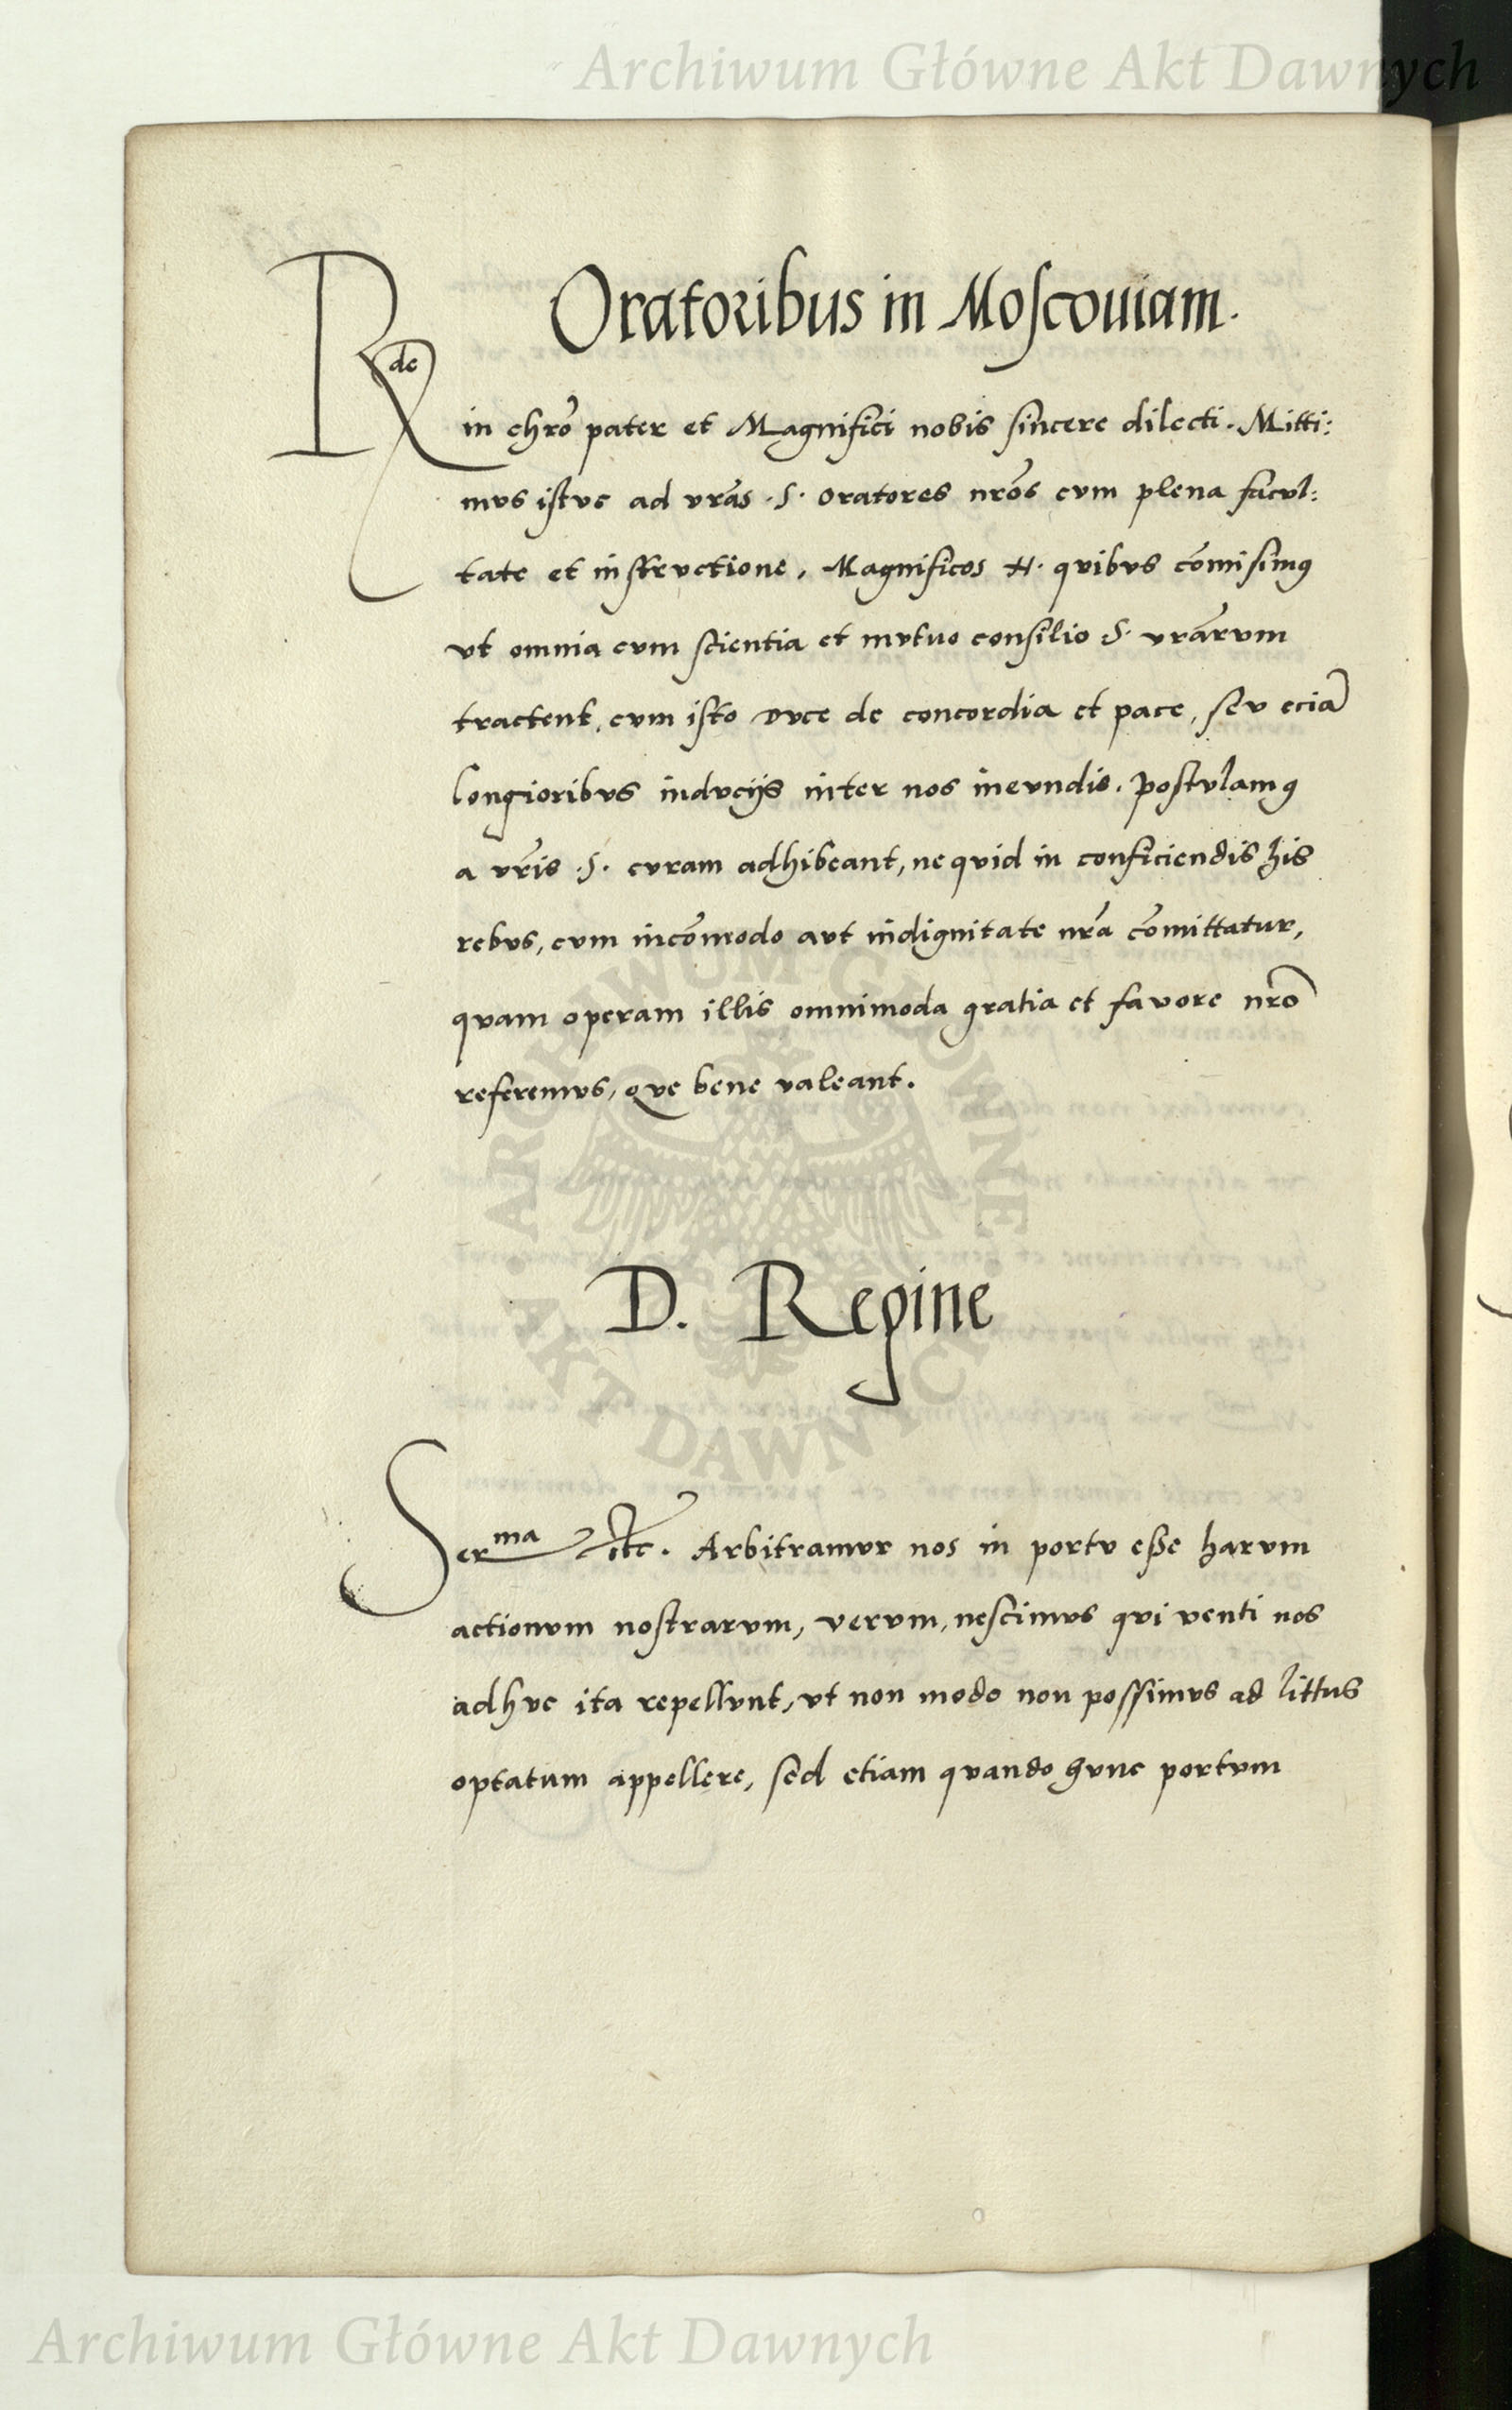 Archiwum Główne Akt Dawnych
Oratoribus in Moscouiam.
Rde
in chr̃o pater et Magnifici nobis sincere dilecti. Mitti:
mvs istvc ad vrãs .S. oratores nrõs cvm plena facvl:
tate et instrvctione, Magnificos N. qvibvs cõmisimꝯ
vt omnia cvm scientia et mvtvo consilio S. vrãrvm
tractent, cvm isto dvce de concordia et pace, sev eciã
longioribvs indvciis inter nos inevndis. postvlamꝯ
a vrĩs .S. cvram adhibeant, ne qvid in conficiendis his
rebvs, cvm incõmodo avt indignitate nrã cõmittatur,
qvam operam illis omnimoda gratia et favore nrõ
referemvs, qve bene valeant.
ARCHIWUM GŁÓWNE
AKT DAWNYCH
D. Regine
Serma etc. Arbitramvr nos in portv esse harvm
actionvm nostrarvm, vervm, nescimvs qvi venti nos
adhvc ita repellvnt, vt non modo non possimvs ad littus
optatum appellere, sed etiam qvando hvnc portvm
Archiwum Główne Akt Dawnych